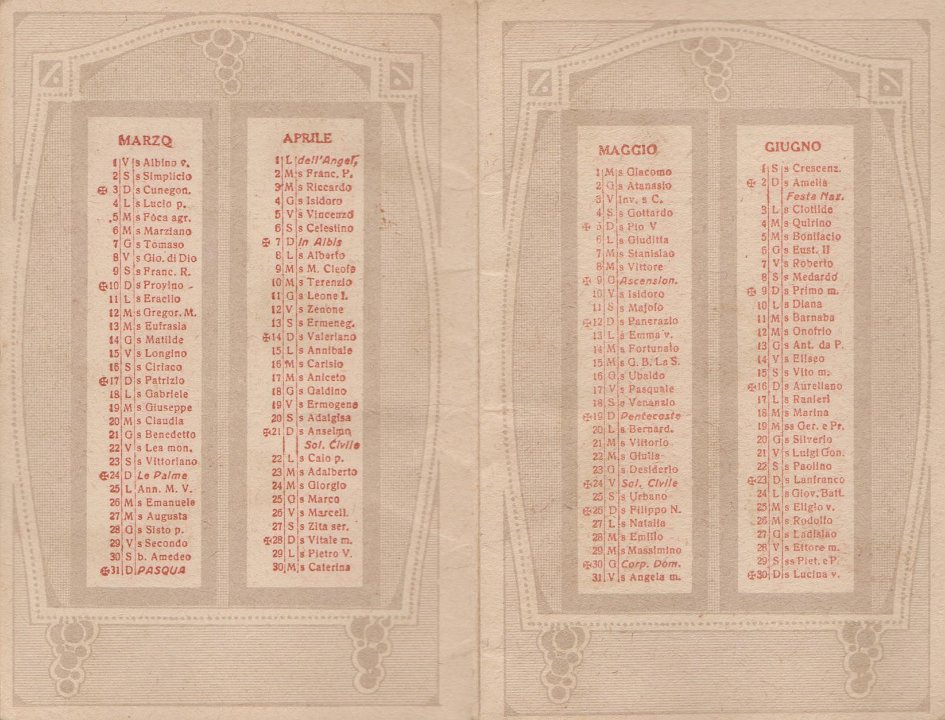 MARZO
1 V s Albino v.
2 S s Simplicio
✠ 3 D s Cunegon.
4 L s Lucio p.
5 M s Fòca agr.
6 M s Marziano
7 G s Tomaso
8 V s Gio. di Dio
9 S s Franc. R.
✠10 D s Provino
11 L s Eraclio
12 M s Gregor. M.
13 M s Eufrasia
14 G s Matilde
15 V s Longino
16 S s Ciriaco
✠17 D s Patrizio
18 L s Gabriele
19 M s Giuseppe
20 M s Claudia
21 G s Benedetto
22 V s Lea mon.
23 S s Vittoriano
✠24 D Le Palme
25 L Ann. M. V.
26 M s Emanuele
27 M s Augusta
28 G s Sisto p.
29 V s Secondo
30 S b. Amedeo
✠31 D PASQUA
APRILE
1 L dell'Angel.
2 M s Franc. P.
3 M s Riccardo
4 G s Isidoro
5 V s Vincenzo
6 S s Celestino
✠ 7 D In Albis
8 L s Alberto
9 M s M. Cleofe
10 M s Terenzio
11 G s Leone I.
12 V s Zenone
13 S s Ermeneg.
✠14 D s Valeriano
15 L s Annibale
16 M s Carisio
17 M s Aniceto
18 G s Galdino
19 V s Ermogene
20 S s Adalgisa
✠21 D s Anselmo
Sol. Civile
22 L s Caio p.
23 M s Adalberto
24 M s Giorgio
25 G s Marco
26 V s Marcell.
27 S s Zita ser.
✠28 D s Vitale m.
29 L s Pietro V.
30 M s Caterina
MAGGIO
1 M s Giacomo
2 G s Atanasio
3 V Inv. s C.
4 S s Gottardo
✠ 5 D s Pio V
6 L s Giuditta
7 M s Stanislao
8 M s Vittore
✠ 9 G Ascension.
10 V s Isidoro
11 S s Majolo
✠12 D s Panerazio
13 L s Emma v.
14 M s Fortunato
15 M s G. B. La S.
16 G s Ubaldo
17 V s Pasquale
18 S s Venanzio
✠19 D Pentecoste
20 L s Bernard.
21 M s Vittorio
22 M s Giulia
23 G s Desiderio
✠24 V Sol. Civile
25 S s Urbano
✠26 D s Filippo N.
27 L s Natalia
28 M s Emilio
29 M s Massimino
✠30 G Corp. Dom.
31 V s Angela m.
GIUGNO
1 S s Crescenz.
✠ 2 D s Amelia
Festa Naz.
3 L s Clotilde
4 M s Quirino
5 M s Bonifacio
6 G s Eust. II
7 V s Roberto
8 S s Medardo
✠ 9 D s Primo m.
10 L s Diana
11 M s Barnaba
12 M s Onofrio
13 G s Ant. da P.
14 V s Eliseo
15 S s Vito m.
✠16 D s Aureliano
17 L s Ranieri
18 M s Marina
19 M ss Ger. e Pr.
20 G s Silverio
21 V s Luigi Gon.
22 S s Paolino
✠23 D s Lanfranco
24 L s Giov. Batt.
25 M s Eligio v.
26 M s Rodolfo
27 G s Ladislao
28 V s Ettore m.
29 S ss Piet. e P.
✠30 D s Lucina v.